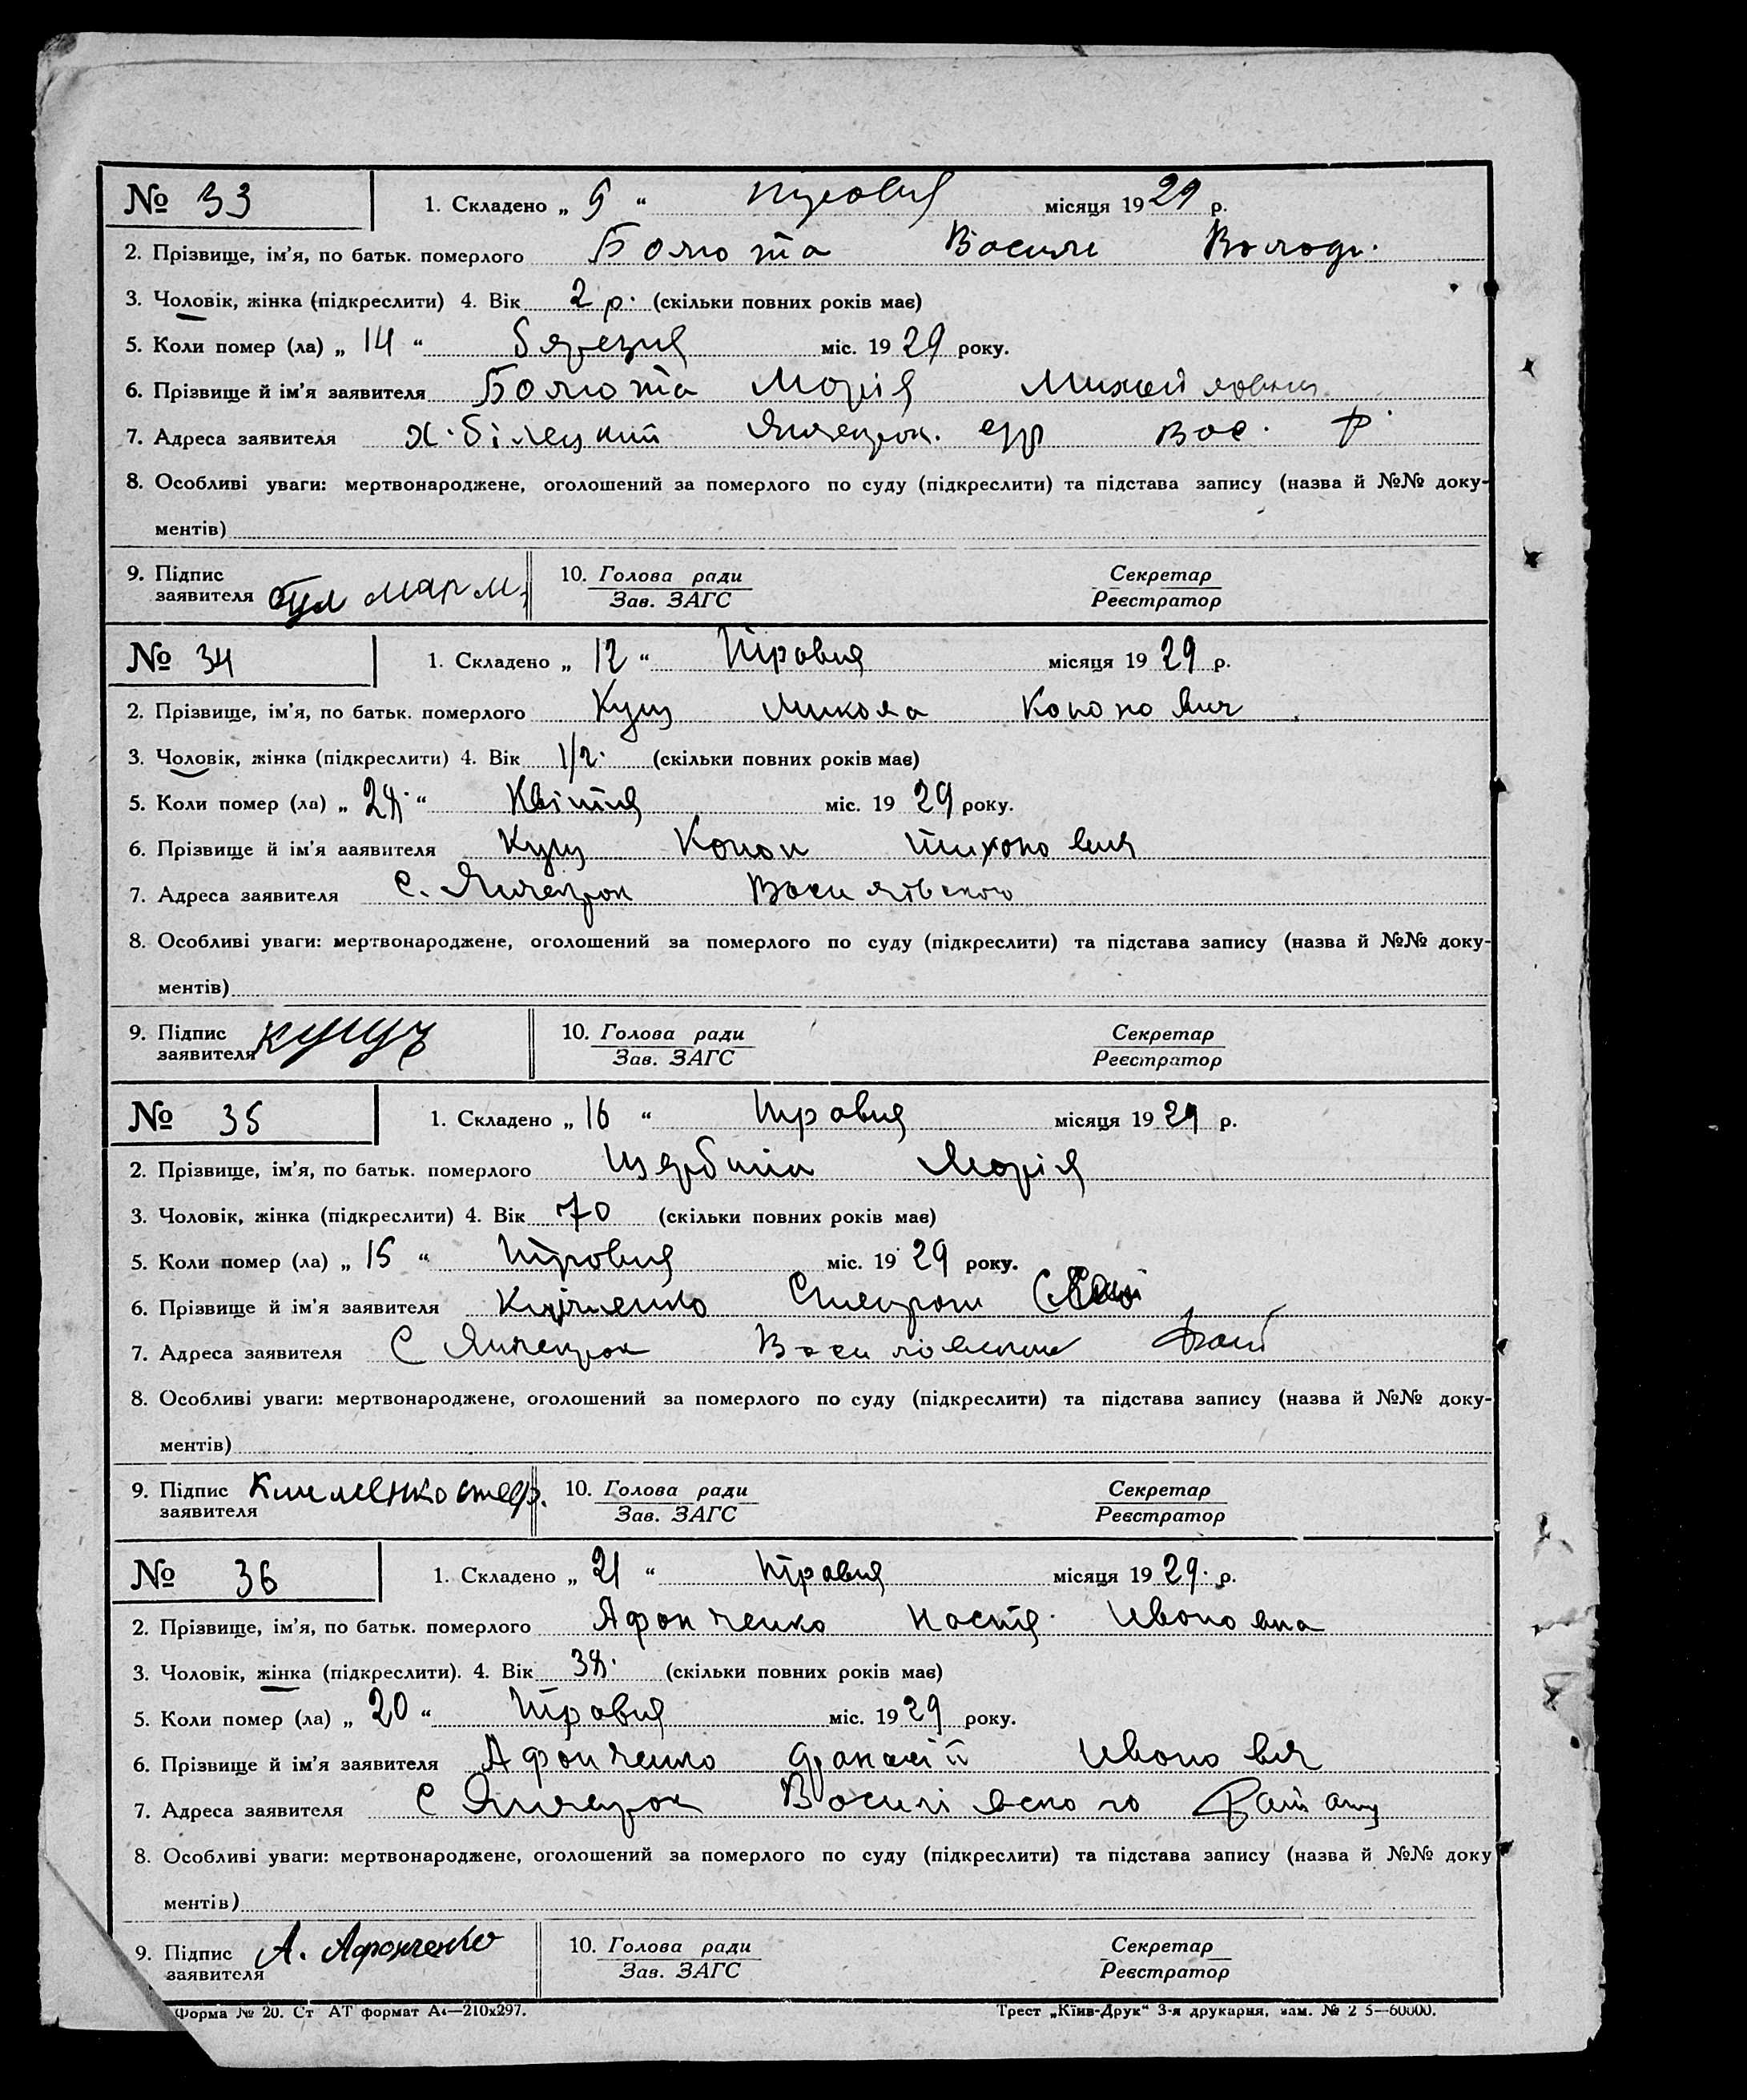 № 33 1. Складено „ 9 “ травня місяця 1929 р.
2. Прізвище, ім'я, по батьк. померлого Болюта Василь Волод.
3. Чоловік, жінка (підкреслити) 4. Вік 2 р. (скільки повних років має)
5. Коли помер (ла) „ 14 “ березня міс. 1929 року.
6. Прізвище й ім'я заявителя Болюта Марія Михайловна
7. Адреса заявителя х. білецкий Янчекрак. Вас. р
8. Особливі уваги: мертвонароджене, оголошений за померлого по суду (підкреслити) та підстава запису (назва й №№ доку-
ментів)
9. Підпис заявителя мар м. 10. Голова ради Секретар
Зав. ЗАГС Реєстратор
№ 34 1. Складено „ 12 “ травня місяця 1929 р.
2. Прізвище, ім'я, по батьк. померлого Кущ Микола Кононович
3. Чоловік, жінка (підкреслити) 4. Вік 1/2. (скільки повних років має)
5. Коли помер (ла) „ “ Квітня міс. 1929 року.
6. Прізвище й ім'я ааявителя Кущ Конон Тихонович
7. Адреса заявителя с. Янчекрак Василівского
8. Особливі уваги: мертвонароджене, оголошений за померлого по суду (підкреслити) та підстава запису (назва й №№ доку-
ментів)
9. Підпис заявителя 10. Голова ради Секретар
Зав. ЗАГС Реєстратор
№ 35 1. Складено „ 16 “ травня місяця 1929 р.
2. Прізвище, ім'я, по батьк. померлого Марія
3. Чоловік, жінка (підкреслити) 4. Вік 70 (скільки повних років має)
5. Коли помер (ла) „ 15 “ травня міс. 1929 року.
6. Прізвище й ім'я заявителя
7. Адреса заявителя С Янчекрак Рай
8. Особливі уваги: мертвонароджене, оголошений за померлого по суду (підкреслити) та підстава запису (назва й №№ доку-
ментів)
9. Підпис заявителя Клименко 10. Голова ради Секретар
Зав. ЗАГС Реєстратор
№ 36 1. Складено „ 21 “ травня місяця 1929. р.
2. Прізвище, ім'я, по батьк. померлого Афонченко Настя Ивановна
3. Чоловік, жінка (підкреслити). 4. Вік (скільки повних років має)
5. Коли помер (ла) „ 20 “ травня міс. 1929 року.
6. Прізвище й ім'я заявителя Афонченко Ивонович
7. Адреса заявителя с Янчекрак Василівского Району
8. Особливі уваги: мертвонароджене, оголошений за померлого по суду (підкреслити) та підстава запису (назва й №№ доку
ментів)
9. Підпис заявителя А. Афонченко 10. Голова ради Секретар
Зав. ЗАГС Реєстратор
Форма № 20. Ст АТ формат А4—210х297. Трест „Київ-Друк“ 3-я друкарня, зам. № 2 5—60000.